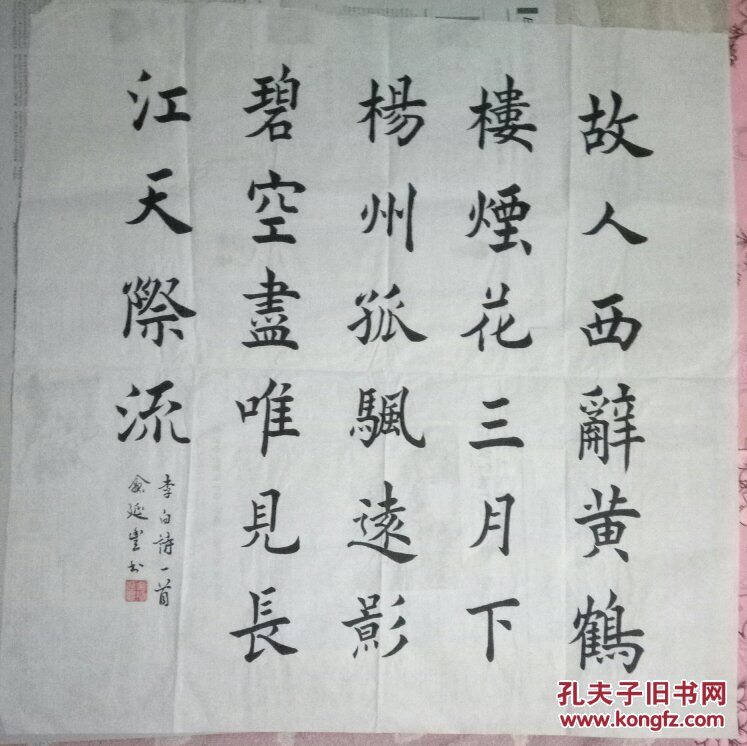 故人西辭黄鶴
樓煙花三月下
楊州孤颿遠影
碧空盡唯見長
江天際流
李白詩一首
延豐书
孔夫子旧书网
www.kongfz.com